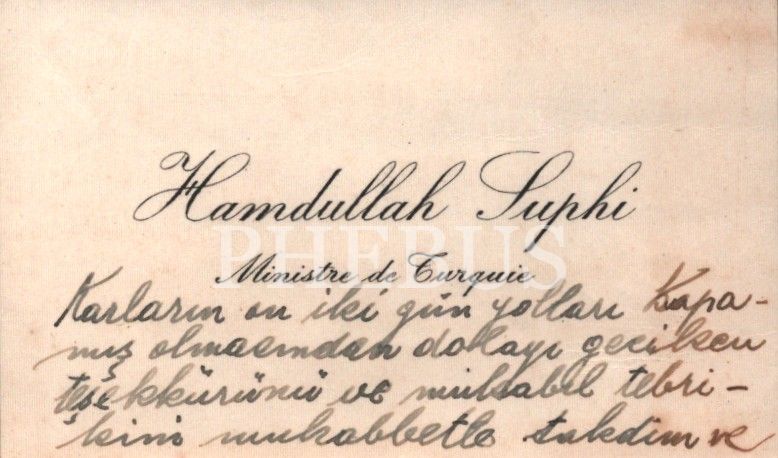 Hamdullah Suphi
PHEBUS
Ministre de Turquie
Karların on iki gün yolları kapa-
mış olmasından dolayı geciken
teşekkürünü ve mukabil tebri-
kini muhabbetle takdim ve